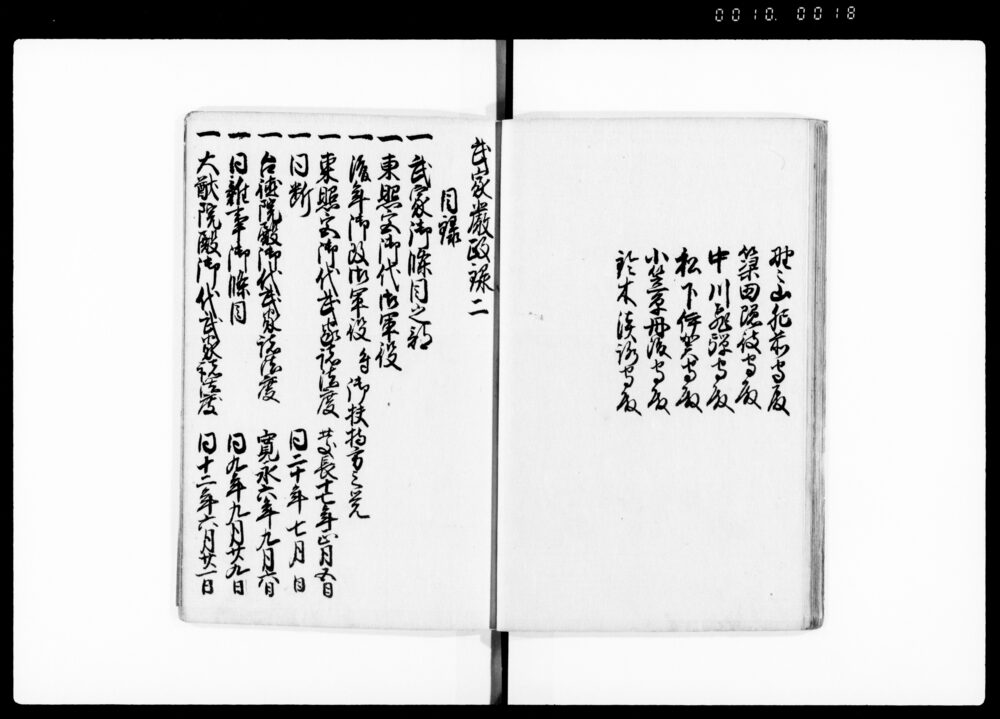 0010. 0018
野々山肥前守殿
築田隠岐守殿
中川飛騨守殿
松下伊賀守殿
小笠原丹後守殿
鈴木淡路守殿
武家厳政録二
目録
一 武家御條目之部
一 東照宮御代御軍役
一 後年御改御軍役 并御扶持方之覚
一 東照宮御代武家諸法度 慶長十七年正月五日
一 同断 同二十年七月日
一 台徳院殿御代武家諸法度 寛永六年九月六日
一 同雑事御條目 同九年九月廿九日
一 大猷院殿御代武家諸法度 同十二年六月廿一日